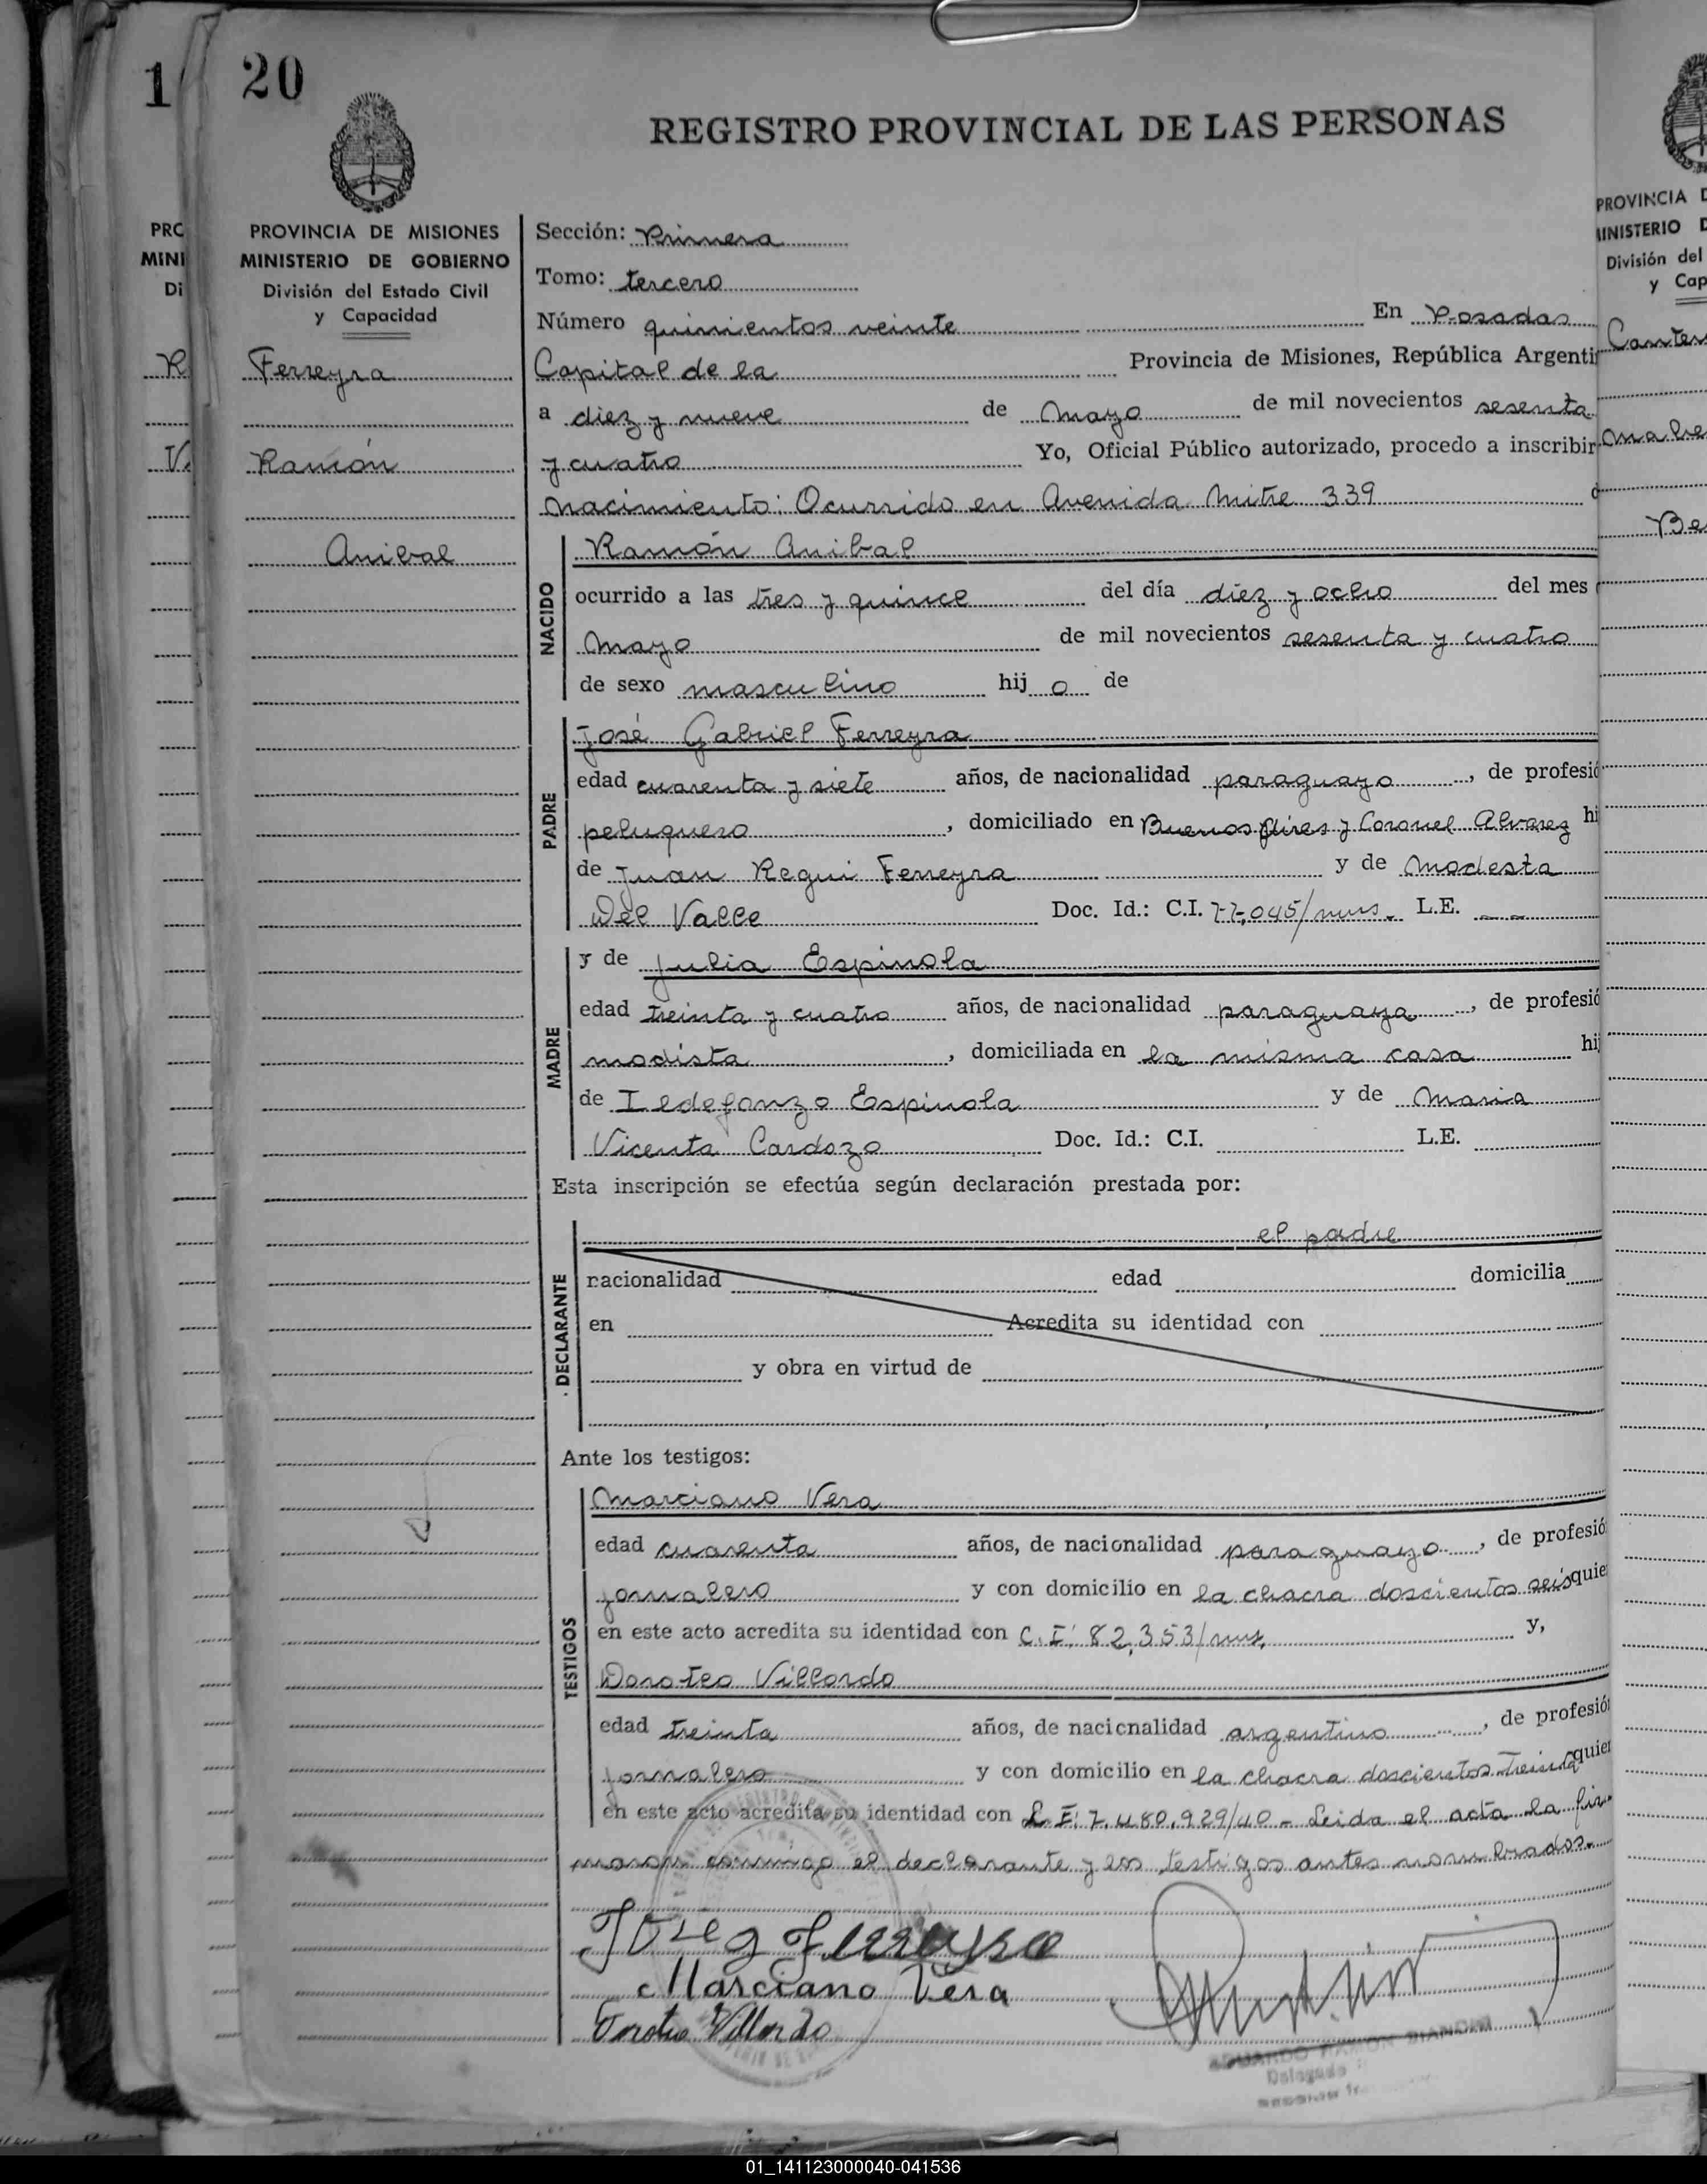 1
20
REGISTRO PROVINCIAL DE LAS PERSONAS
PROVINCIA DE MISIONES
MINISTERIO DE GOBIERNO
División del Estado Civil
y Capacidad
Ferreyra
Ramón
Anibal
Sección: Primera
Tomo: tercero
Número quinientos veinte En Posadas
Capital de la Provincia de Misiones, República Argenti
a diez y nueve de Mayo de mil novecientos sesenta
y cuatro Yo, Oficial Público autorizado, procedo a inscribir
nacimiento: Ocurrido en Avenida Mitre 339
NACIDO
Ramón Anibal
ocurrido a las tres y quince del día diez y ocho del mes
Mayo de mil novecientos sesenta y cuatro
de sexo masculino hij o de
PADRE
José Gabriel Ferreyra
edad cuarenta y siete años, de nacionalidad paraguayo, de profesió
peluquero, domiciliado en Buenos Aires y Coronel Alvarez hi
de Juan Regui Ferreyra y de Modesta
Del Valle Doc. Id.: C.I. 77,045/mns. L.E. --
MADRE
y de Julia Espinola
edad treinta y cuatro años, de nacionalidad paraguaya, de profesió
modista, domiciliada en la misma casa hij
de Ildefonzo Espinola y de Maria
Vicenta Cardozo Doc. Id.: C.I. L.E.
Esta inscripción se efectúa según declaración prestada por:
DECLARANTE
el padre
nacionalidad edad domicilia
en Acredita su identidad con
y obra en virtud de
Ante los testigos:
TESTIGOS
Marciano Vera
edad cuarenta años, de nacionalidad paraguayo, de profesió
jornalero y con domicilio en la chacra doscientos seis quie
en este acto acredita su identidad con C.I. 82,353/mns, y,
Doroteo Villordo
edad treinta años, de nacionalidad argentino, de profesió
jornalero y con domicilio en la chacra doscientos treinta quie
en este acto acredita su identidad con L.E. 7.480.929/40 - Leida el acta la fir
maron conmigo el declarante y los testigos antes nombrados.
Jose g Ferreyra
Marciano Vera
Doroteo Villordo
EDUARDO RAMON BIANCHI
Delegado
PROVINCIA D
MINISTERIO D
División del
y Cap
01_141123000040-041536